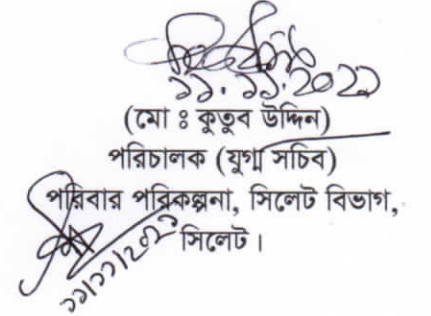 ১১.১১.২০২১
(মো ঃ কুতুব উদ্দিন)
পরিচালক (যুগ্ম সচিব)
পরিবার পরিকল্পনা, সিলেট বিভাগ,
সিলেট।
১১/১১/২০২১